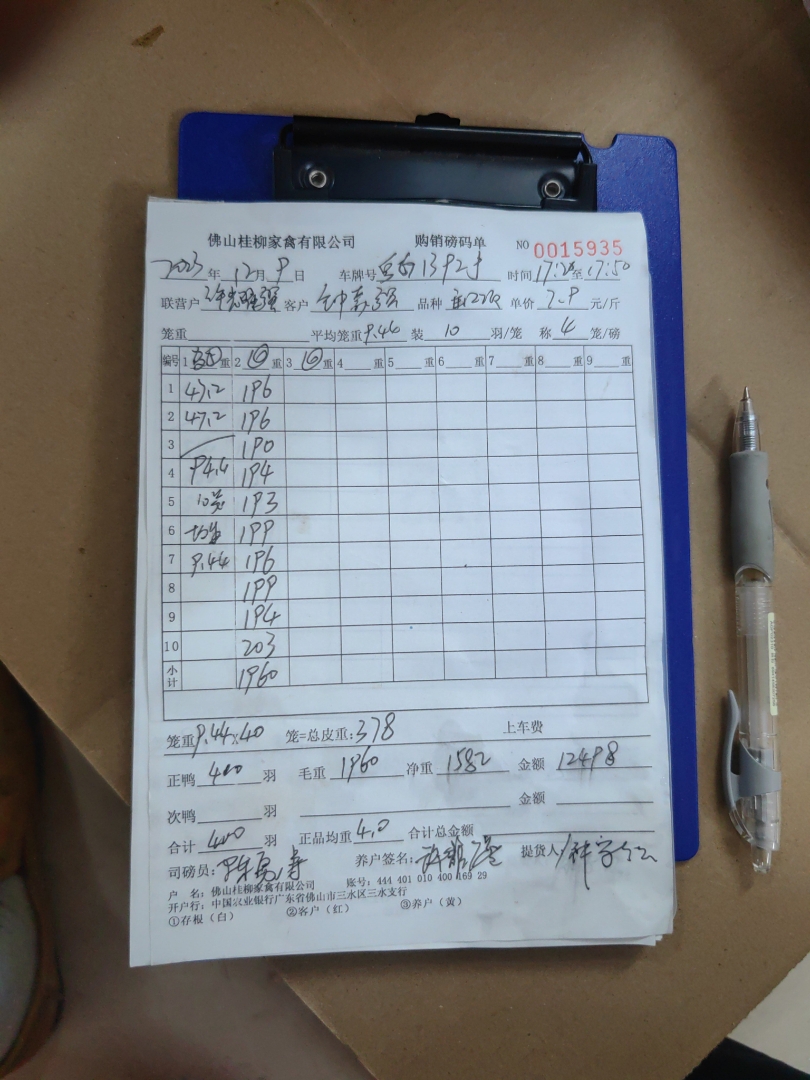 佛山桂柳家禽有限公司 购销磅码单 NO 0015935
2023年12月9日 车牌号 1392 时间17:20至17:50
联营户 客户 品种 单价7.9元/斤
笼重 平均笼重9.44 装10羽/笼 称4笼/磅
编号 1 重 2 重 3 重 4 重 5 重 6 重 7 重 8 重 9 重
1 47.2 196
2 47.2 196
3 190
4 94.4 194
5 10笼 193
6 199
7 9.44 196
8 199
9 194
10 203
小计 1960
笼重9.44×40 笼=总皮重:378 上车费
正鸭400羽 毛重1960 净重1582 金额12498
次鸭 羽 金额
合计400羽 正品均重4.0 合计总金额
司磅员: 养户签名: 提货人
户 名:佛山桂柳家禽有限公司 账号:444 401 010 400 169 29
开户行:中国农业银行广东省佛山市三水区三水支行
①存根(白) ②客户(红) ③养户(黄)